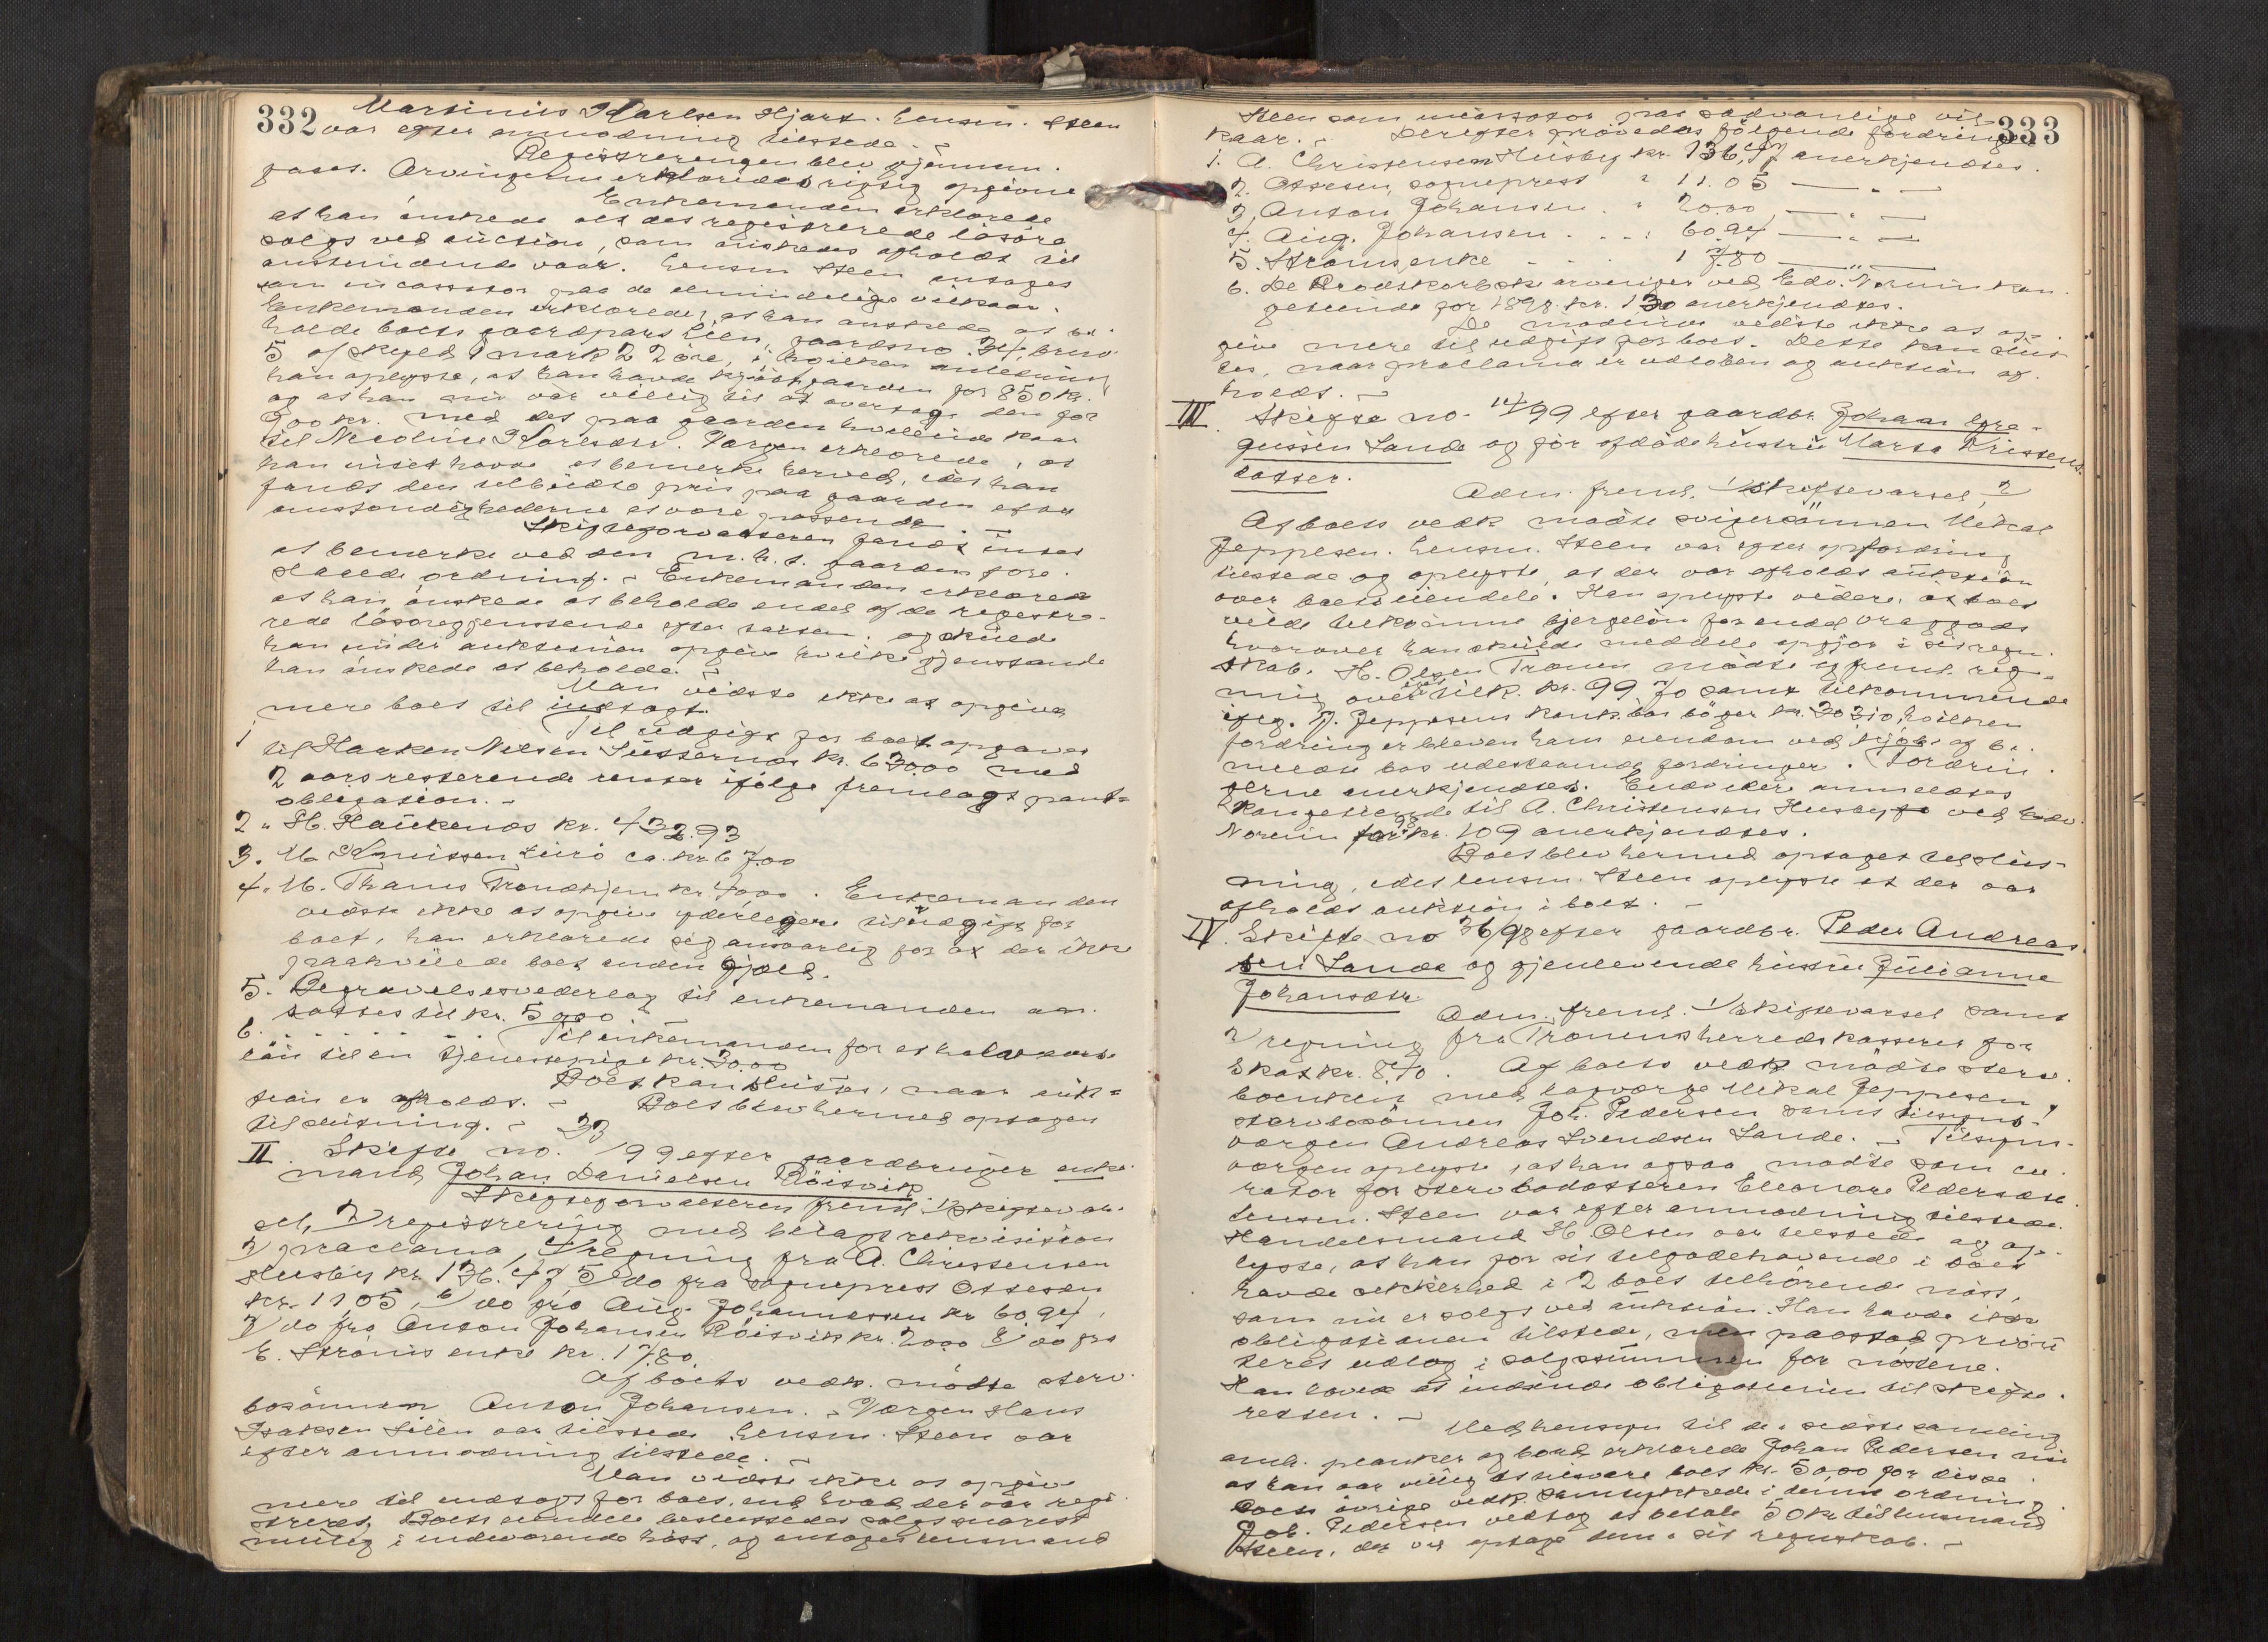 332
Martinius Karlsen Hjart. Lensm. Steen
var efter anmodning tilstede. -
Registreringen blev gjennem-
gaaet. Arvingerne erklæredes rigtig opgivne
Enkemanden erklærede
at han önskede alt det registrerede lösöre
solgt ved auction, som önskedes afholdt til
anstundende vaar. Lensm Steen antages
som incassator paa de almindelige vilkaar.
Enkemanden erklærede, at han önskede at be-
holde boets gaardpart Lien, gaardsno. 34, brno.
5 af skyld 1 mark 22 öre, i hvilken anledning
han oplyste, at han havde kjöbt gaarden for 850 kr.
og at han nu var villig til at overtage den for
900 kr. med det paa gaarden hvilende kaar
til Nicoline Karlsdtr. Værgen erklærede, at
han intet havde at bemerke herved, idet han
fandt den tilbudte pris paa gaarden efter
omstændighederne at være passende. -
Skifteforvalteren fandt intet
at bemerke ved den m. h. t. gaarden fore-
slaaede ordning. - Enkemanden erklærede
at han önskede at beholde endel af de registre-
rede lösöregjenstande efter taksten, og skulde
han under auktionen opgive hvilke gjenstande
han önskede at beholde. -
Man vidste ikke at opgive
mere boet til indtægt.
Til udgift for boet opgaves
1 til Haaken Nilsen Susternes kr. 630.00 med
2 aars resterende renter ifölge fremlagt pant=
obligation. -
2 " H. Haukenæs kr. 432.93
3. M Knutssen Lurö ca. kr. 67.00
4. M. Thams Trondhjem kr. 40.00. Enkemanden
vidste ikke at opgive yderligere til udgift for
boet, han erklærede sig ansvarlig for at der ikke
paahvilede boet anden gjæld.
5. Begravelsesvederlag til enkemanden an-
sattes til kr. 50.00
6. . . . . . . . Til enkemanden for et halvt aars
lön til en tjenestepige kr. 30.00
Boet kan sluttes, naar auk=
tion er afholdt. - Boet blev hermed optagen
til slutning. -
II. Skifte no. 33/99 efter gaardbruger enke-
mand Johan Danielsen Röisvik
Skifteforvalteren freml. 1) skiftevar-
sel, 2) registrering med bilagt rekvisition
3) proclama, 4) regning fra A. Christensen
Husby kr. 136.47 5) do fra sogneprest Ottesen
kr. 11 05, 6) do fra Aug. Johannessen kr 60.94,
7) do fra Anton Johansen Röisvik kr. 20.00 8) do fra
E. Ströms enke kr. 17.80.
Af boets vedk. mödte sterv-
bosönnen Anton Johansen. - Værgen Hans
Isaksen Silen var tilstede. Lensm. Steen var
efter anmodning tilstede. -
Man vidste ikke at opgive
mere til indtægt for boet, end hvad der var regi-
streret. Boets eiendele besluttedes solgt snarest
mulig i indeværende höst, og antages lensmand
333
Steen som incassator paa sædvanlige vil-
kaar. - Derefter prövedes fölgende fordringer
1. A. Christensen Husby kr. 136,47 anerkjendtes.
2. Ottesen, sogneprest " 11.05 — " —
3, Anton Johansen. " 20.00, — " —
4. Aug. Johansen . . . : 60.94 — " —
5. Ströms enke . . . 17.80 — " —
6. De Brodtkorbske arveinger ved Edv. Norum kon-
gstiende for 1898 kr. 1.30 anerkjendtes.
De mödende vidste ikke at op-
give mere til udgift for boet. Dette kan slut-
tes, naar proclama er udlöben og auktion af-
holdt. -
III. Skifte no. 14/99 efter gaardbr. Johan Gre-
gussen Sande og för afdöde hustru Marta Kristens
datter.
Adm. freml. 1) skiftevarsel, 2
Af boets vedk mödte svigersönnen Mikal
Jeppesen. Lensm. Steen var efter opfordring
tilstede og oplyste, at der var afholdt auktion
over boets eiendele. Han oplyste videre, at boet
vilde tilkomme bjergelön for endel vraggods
hvorover han skulde meddele opgjör i sit regn-
skab. H. Olsen Trænen mödte og freml. reg-
ning over et tilk. kr. 99.70 samt tilkommende
ifeg. P. Jeppesens konk.bos böger kr. 303.10, hvilken
fordring er bleven ham eiendom ved kjöb af be-
meldte bos udestaaende fordringer. Fordrin-
gerne anerkjendtes. Endvidere anmeldtes
kongetiende til A. Christensen Husby ved Edv.
Norum for kr. 109 anerkjendtes.
Boet blev hermed optaget til slut-
ning, idet lensm. Steen oplyste at der var
afholdt auktion i boet. -
IV. Skifte no 36/98 efter gaardbr. Peder Andreas
sen Sande og gjenlevende hustru Julianne
Johansdtr.
Adm. freml. 1) skiftevarsel samt
2) regning fra Trænens herredskasserer for
skat kr. 8.70. Af boets vedk mödte sterv-
boenken med lagværge Mikal Jeppesen,
stervbosönnen Joh. Pedersen samt tilsyns-
værgen Andreas Svendsen Sande. - Tilsyns-
værgen oplyste, at han ogsaa mödte som cu-
rator for stervbodatteren Eleonore Pedersdtr.
Lensm. Steen var efter anmodning tilstede.
Handelsmand H Olsen var tilstede og op-
lyste, at han for sit tilgodehavende i boet
havde sikkerhed i 2 boet tilhörende nöst,
som nu er solgt ved auktion. Han havde ikke
obligationen tilstede, men paastod priori
teret udlæg i salgssummen for nöstene.
Han lovede at indsende obligationen til skifte-
retten. -
Med hensyn til de i sidste samling
omh. planker og bord erklærede Johan Pedersen nu
at han var villig at tilsvare boet kr. 50,00 for disse.
Boets övrige vedk. samtykkede i denne ordning.
Joh. Pedersen vedtog at betale 50 kr til lensmand
Steen, der vil optage dem i sit regnskab. -